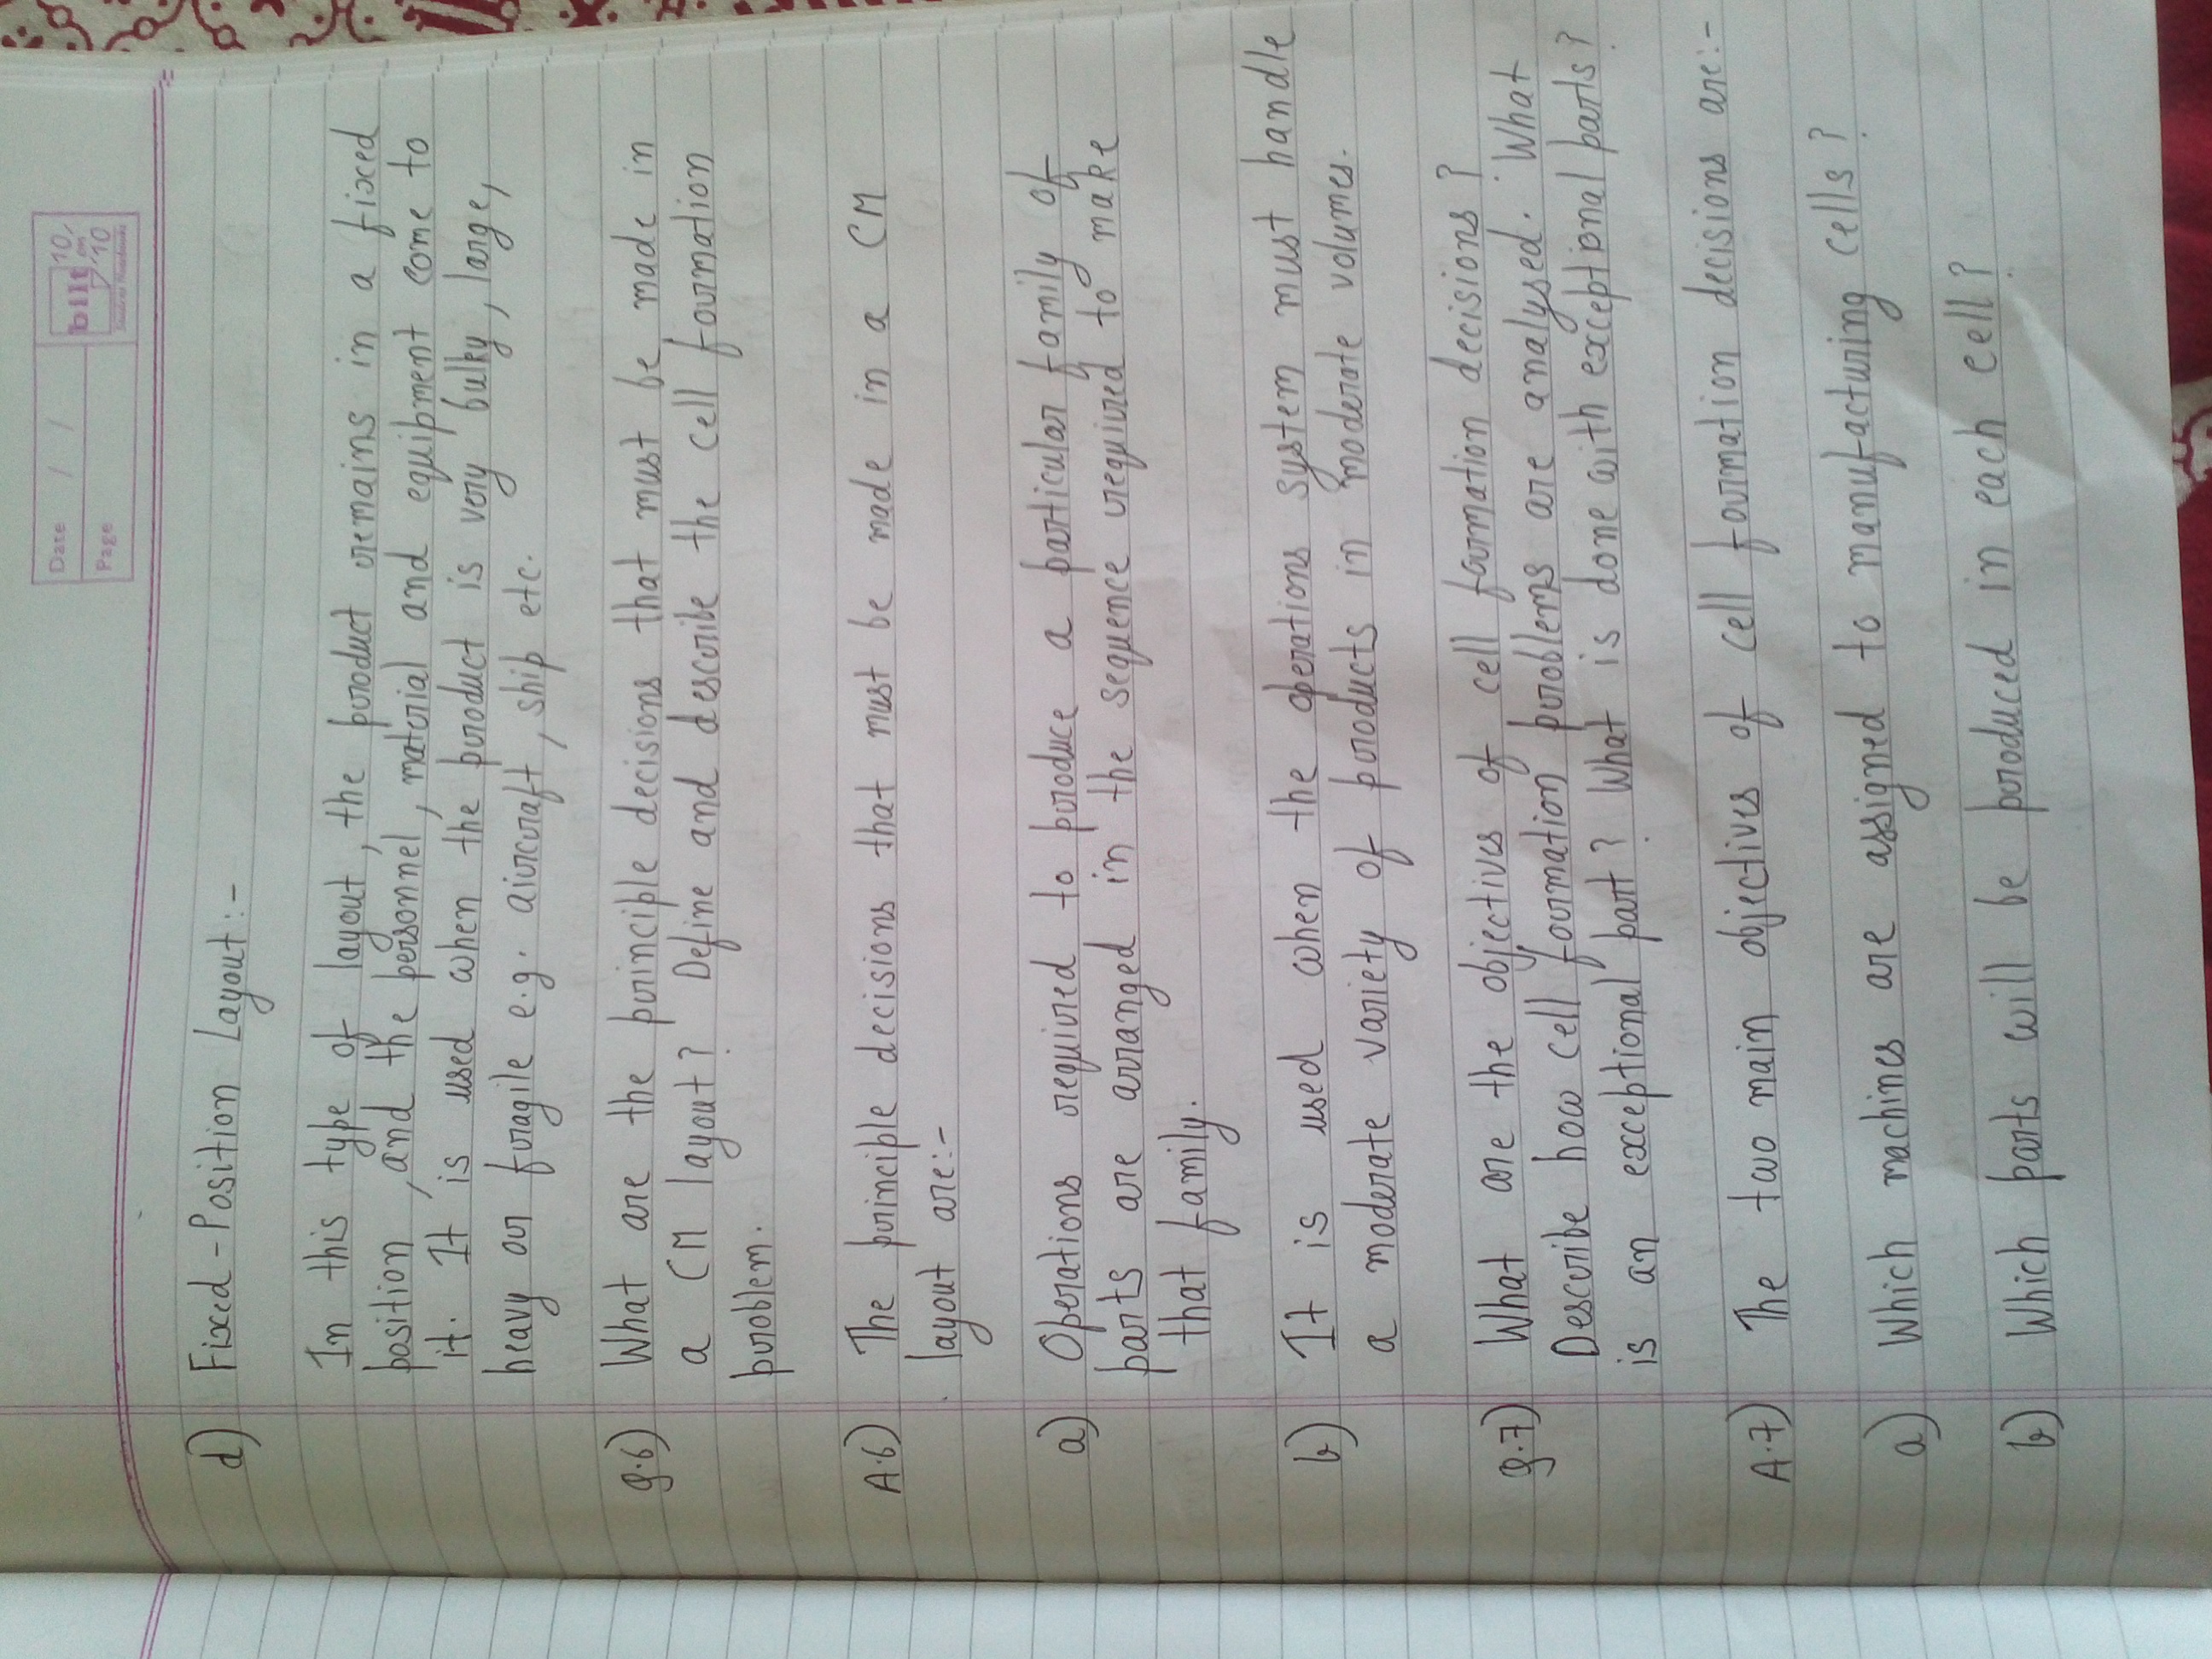 Date / /
Page
bilt
10
on
10
d) Fixed-Position Layout:-
In this type of layout, the product remains in a fixed
position, and the personnel, material and equipment come to
it. It is used when the product is very bulky, large,
heavy or fragile e.g. aircraft, ship etc.
Q.6) What are the principle decisions that must be made in
a CM layout? Define and describe the cell formation
problem.
A.6) The principle decisions that must be made in a CM
layout are:-
a) Operations required to produce a particular family of
parts are arranged in the sequence required to make
that family.
b) It is used when the operations system must handle
a moderate variety of products in moderate volumes.
Q.7) What are the objectives of cell formation decisions?
Describe how cell formation problems are analysed. What
is an exceptional part? What is done with exceptional parts?
A.7) The two main objectives of cell formation decisions are:-
a) Which machines are assigned to manufacturing cells?
b) Which parts will be produced in each cell?